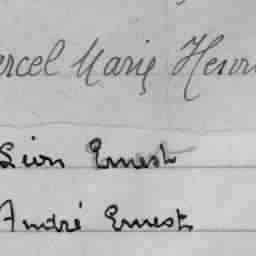 ercel Marie Henri
Léon Ernest
André Ernest